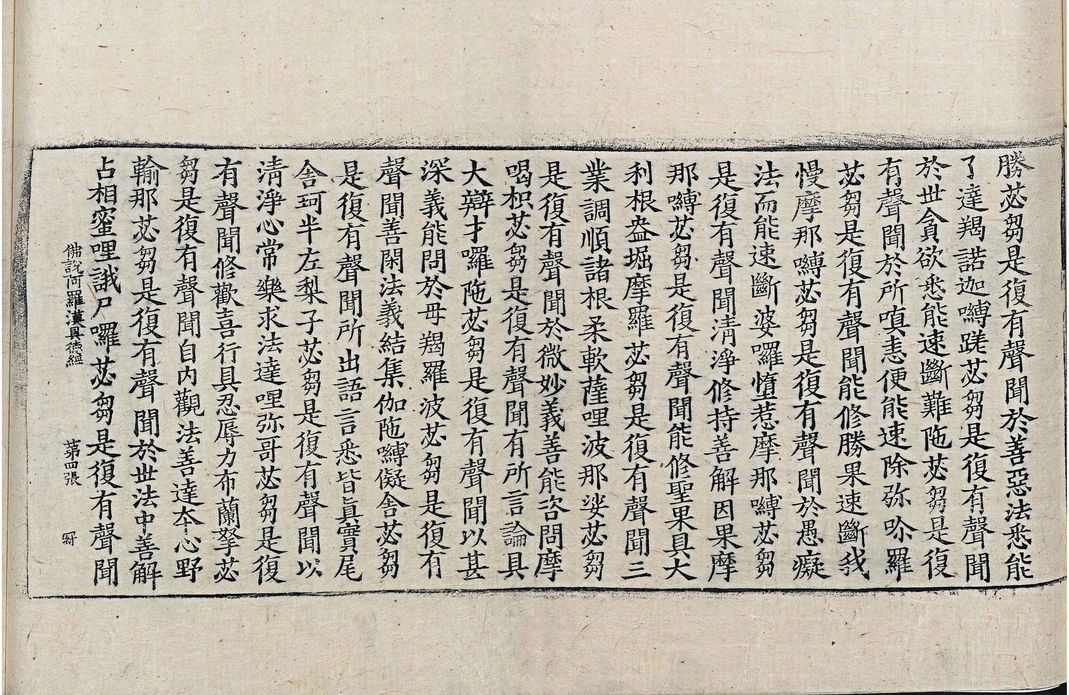 勝苾芻是復有聲聞於善惡法悉能
了達羯諾迦嚩蹉苾芻是復有聲聞
於世貪欲悉能速斷難陁苾芻是復
有聲聞於所嗔恚便能速除弥吟羅
苾芻是復有聲聞能修勝果速斷我
慢摩那嚩苾芻是復有聲聞於愚癡
法而能速斷婆囉憻惹摩那嚩苾芻
是復有聲聞清淨修持善解因果摩
那嚩苾芻是復有聲聞能修聖果具大
利根盎堀摩羅苾芻是復有聲聞三
業調順諸根柔軟薩哩波那娑苾芻
是復有聲聞於微妙義善能咨問摩
喝枳苾芻是復有聲聞有所言論具
大辯才囉陁苾芻是復有聲聞以甚
深義能問於母羯羅波苾芻是復有
聲聞善閑法義結集伽陁嚩儗舍苾芻
是復有聲聞所出語言悉皆眞實尾
舍珂半左梨子苾芻是復有聲聞以
清淨心常樂求法達哩弥哥苾芻是復
有聲聞修歡喜行具忍辱力布蘭拏苾
芻是復有聲聞自內觀法善達本心野
輸那苾芻是復有聲聞於世法中善解
占相蜜哩誐尸囉苾芻是復有聲聞
佛說阿羅漢具德經 第四張